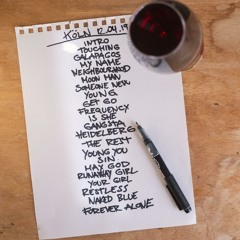 KÖLN 12.04.19
INTRO
TOUCHING
GALAPAGOS
MY NAME
NEIGHBOURHOOD
MOON MAN
SOMEONE NEW
YOUNG
GET GO
FREQUENCY
IS SHE
GANGSTA
HEIDELBERG
THE REST
YOUNG YOU
SIN
MAY GOD
RUNAWAY GIRL
YOUR GIRL
RESTLESS
NAKED BLUE
FOREVER ALONE